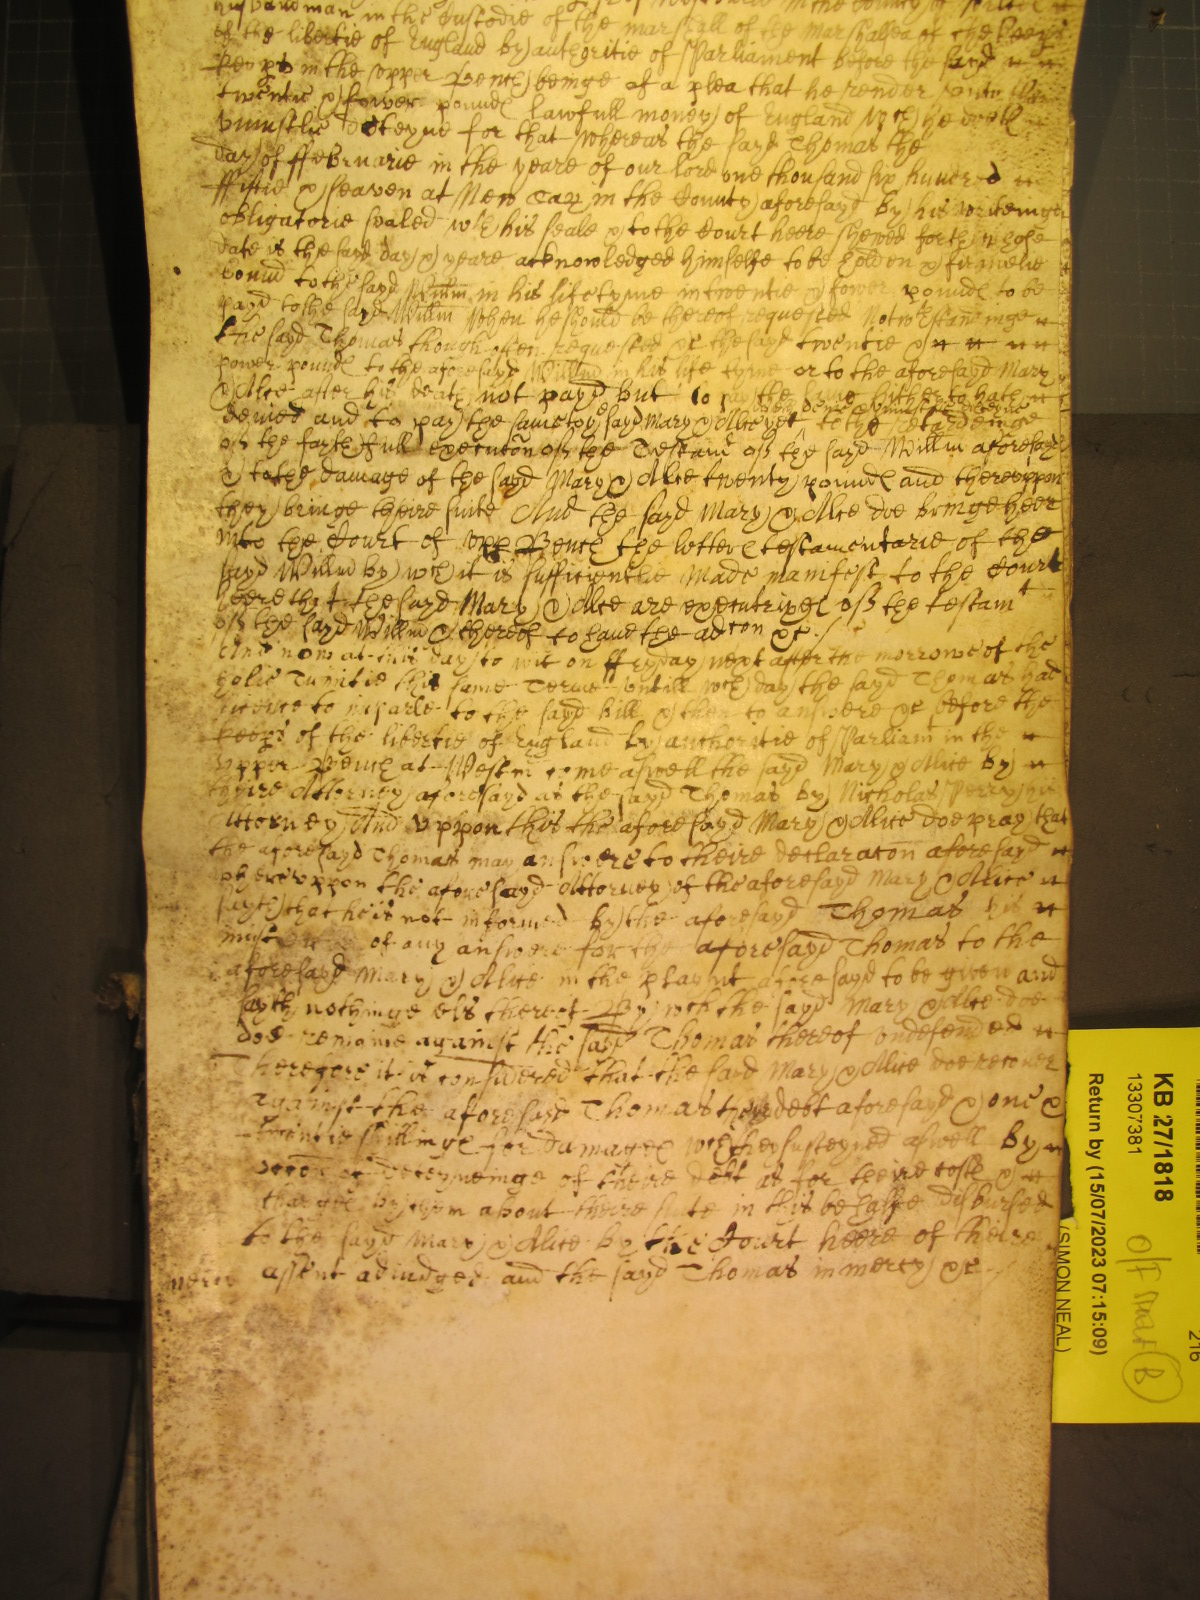 husbandman in the Custodie of the marshall of the Marshalsea of the keeps
of the libertie of England by authoritie of Parliament before the sayd
keeps in the vpper Bench beinge of a plea that he render vnto them
twentie & fower pounds lawfull money of England wch he oweth
Vniustlie deteyne for that whereas the sayd Thomas the
day of ffebruarie in the yeare of our lord one thousand six hundred
ffiftie & seaven at New in the County aforesayd by his writeinge
obligatorie sealed wth his seale & to the Court heere shewed forth whose
date is the sayd day & yeare acknowledged himselfe to be holden & firmelie
bound to the sayd Willm in his life tyme in twentie & fower pounds to be
payd to the sayd Willm when he should be thereof requested Notwthstandinge
the sayd Thomas though often requested &c the sayd twentie &
fower pounds to the aforesayd Willm in his life tyme or to the aforesayd Mary
& Alice after his death not payd but to pay the same hitherto hath
denied and to pay the same to ye sayd Mary & Alice yet to the retardeinge
doth denie & vniustlie deteyne
off the further full execution off the Testamt off the sayd Willm aforesayd
& to the damage of the sayd Mary & Alice twenty pounds and therevppon
they bringe theire suite And the sayd Mary & Alice doe bringe heer
into the Court of vpp Bench the letters testamentarie of the
sayd Willm by wch it is sufficientlie made manifest to the Court
heere that the sayd Mary & Alice are executrixes off the testamt
off the sayd Willm & thereof to haue the accon &c
And now at this day to wit on ffryday next after the morrowe of the
holie Trinitie this same Terme vntill wch day the sayd Thomas had
licence to imparle to the sayd bill & then to answere &c before the
keeps of the libertie of England by authoritie of Parliamt in the
vpper Bench at Westm come aswell the sayd Mary & Alice by
theire Attorney aforesayd as the sayd Thomas by Nicholas Perry his
Attorney And vppon this the aforesayd Mary & Alice doe pray that
the aforesayd Thomas may answere to theire declaracon aforesayd
wherevppon the aforesayd Attorney of the aforesayd Mary & Alice
sayth that he is not informed by the aforesayd Thomas his
master of any answere for the aforesayd Thomas to the
aforesayd Mary & Alice in the playnt aforesayd to be given and
sayth nothinge els thereof By wch the sayd Mary & Alice doe
doe remaine against the sayd Thomas thereof vndefended
Therefore it is considered that the sayd Mary & Alice doe recover
against the aforesayd Thomas theire debt aforesayd & one &
twentie shillinges for damages wch they susteyned aswell by
occon of deteyneinge of theire debt as for theire costs &
charges by them about theire suite in this behalfe disbursed
to the sayd Mary & Alice by the Court heere of theire
mercie assent adiudged and the sayd Thomas in mercy &c
KB 27/1818
13307381
Return by (15/07/2023 07:15:09)
(SIMON NEAL)
216
B